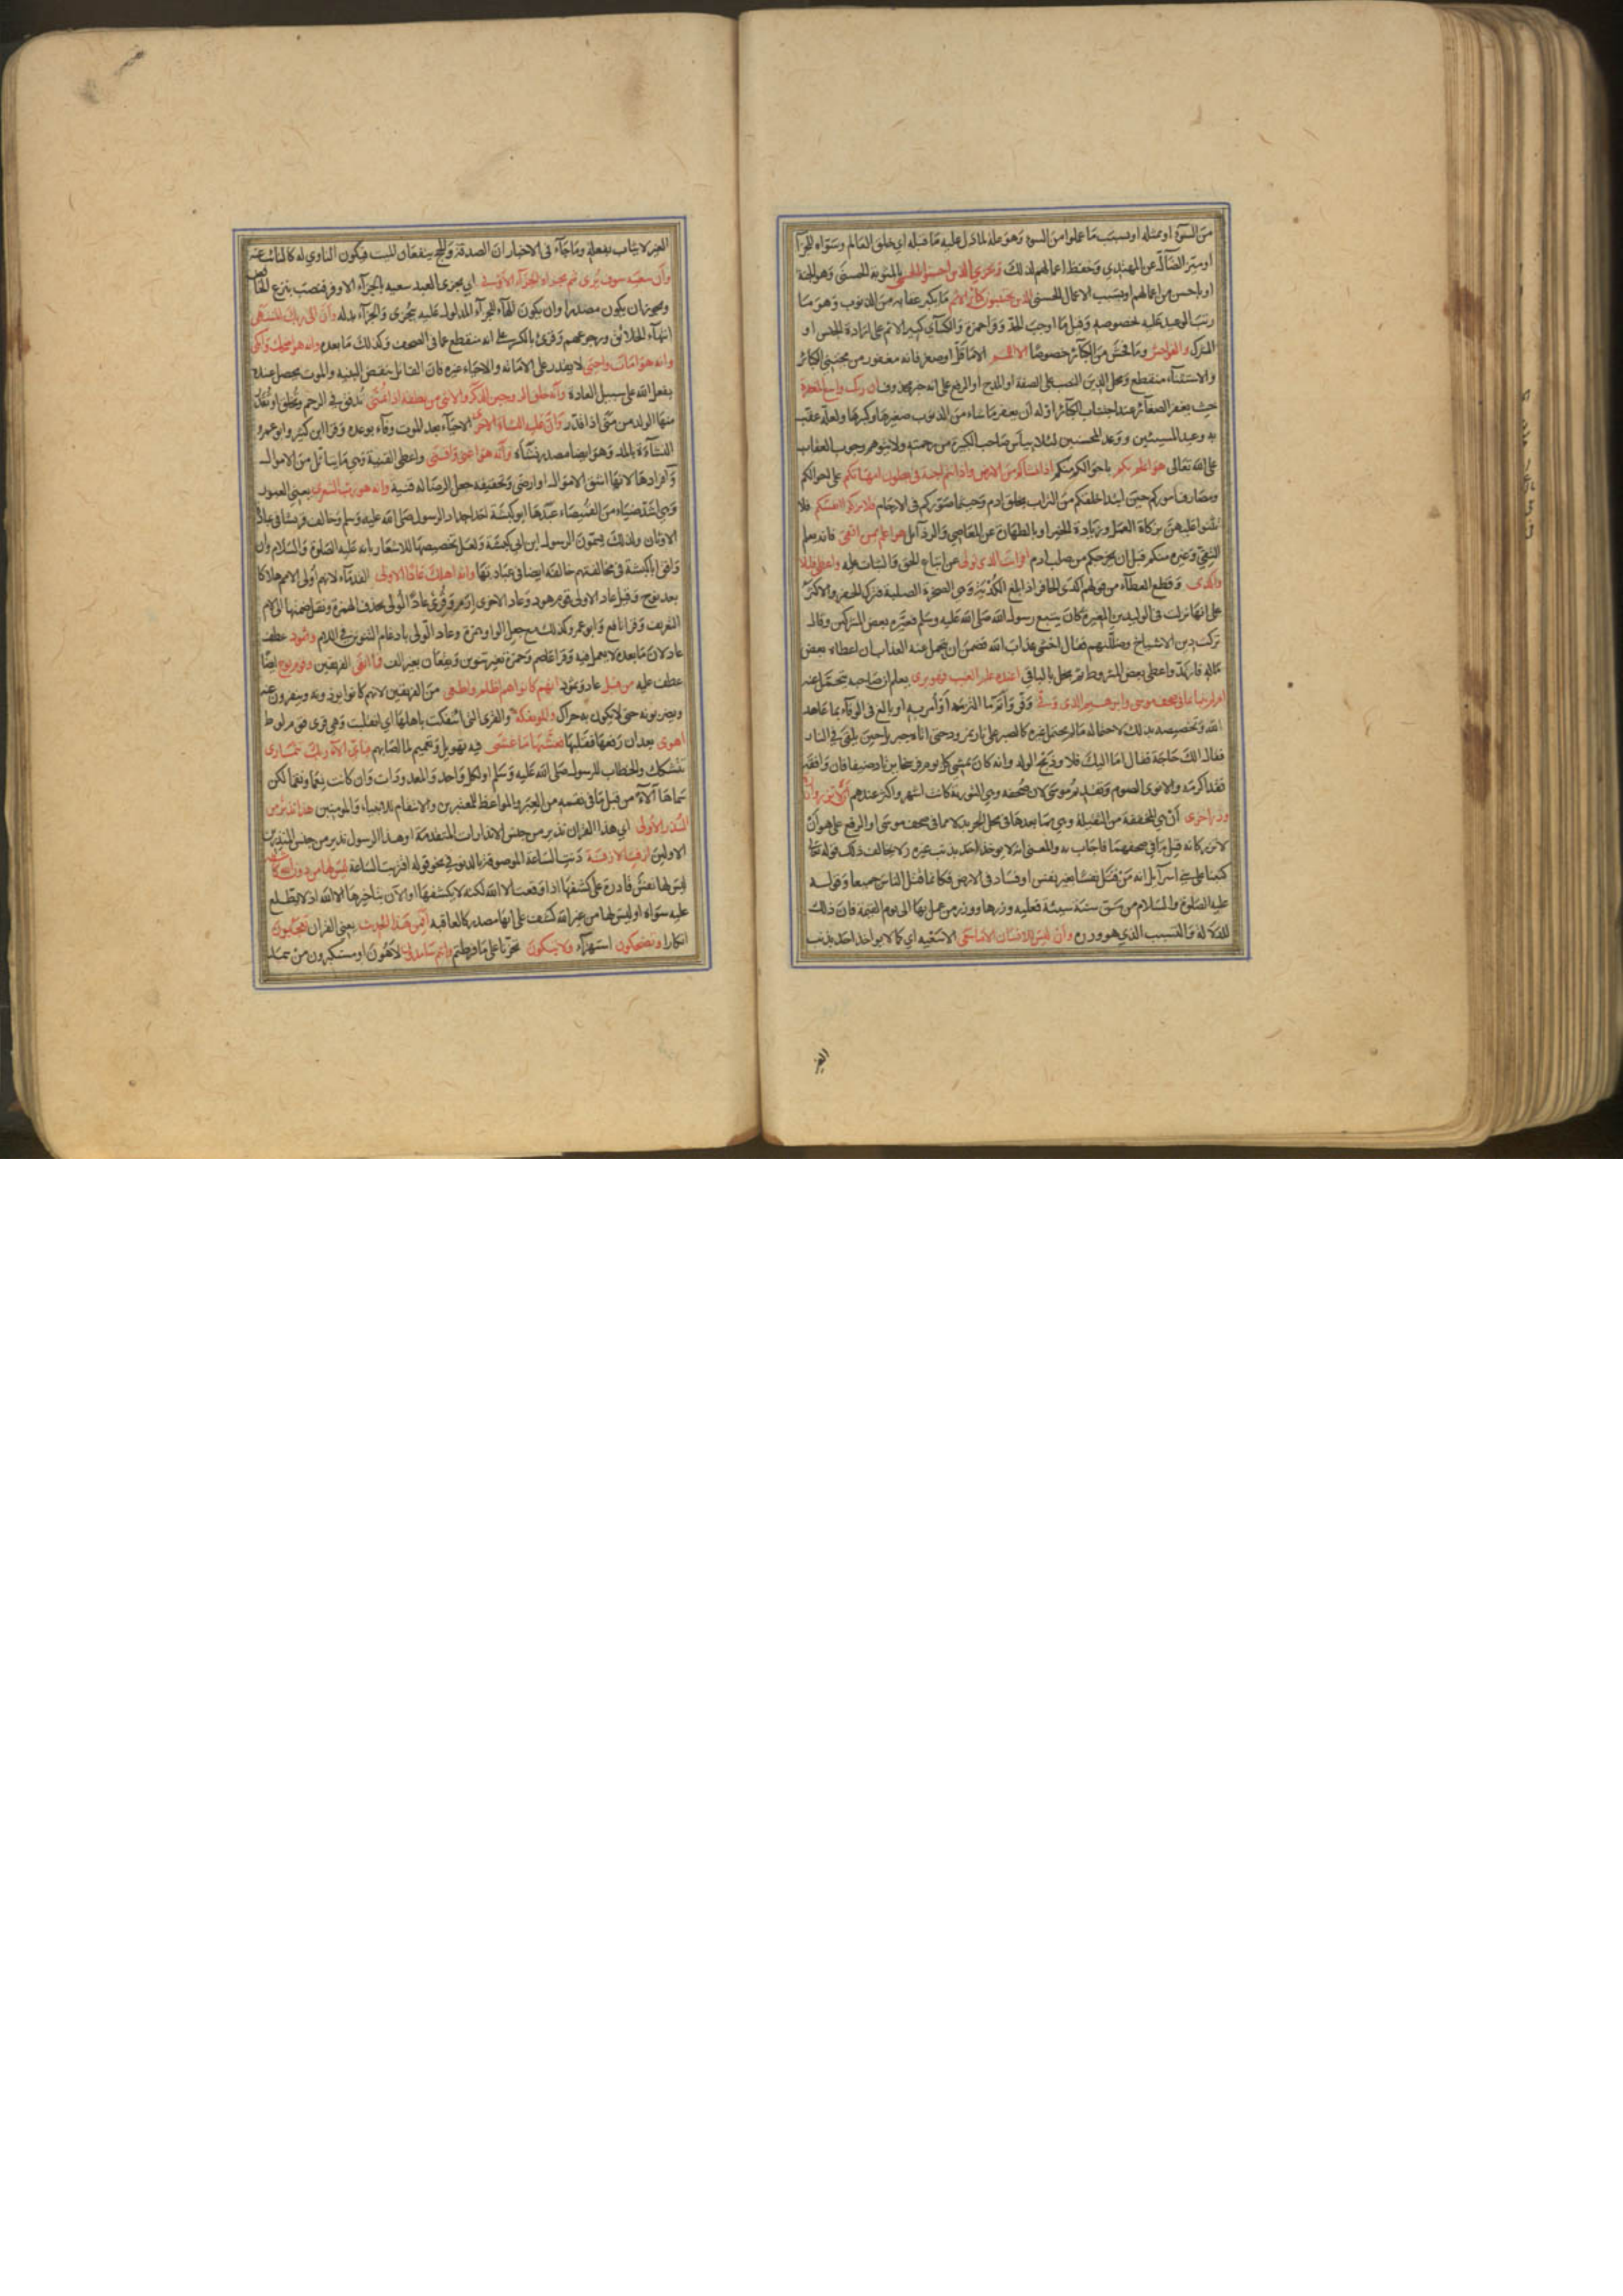 من السوء او بمثله او بسبب ما عملوا من السوء وهو علة لما دل عليه ما قبله اي خلق العالم وسواه للجزا
او ميز الضال عن المهتدي وحفظ احوالهم لذلك ويجزي الذين احسنوا بالحسنى بالمثوبة الحسنى وهو الجنة
او باحسن من اعمالهم او بسبب الاعمال الحسنى الذين يجتنبون كبائر الاثم ما يكبر عقابه من الذنوب وهو ما
رتب الوعيد عليه بخصوصه وقيل ما اوجب الحد وقرا حمزة والكسآي كبير الاثم على ارادة الجنس او
الشرك والفواحش وما فحش من الكبآئر خصوصا الا اللمم الا ما قل او صغر فانه مغفور من مجتنبي الكبائر
والاستثناء منقطع ومحل الذين النصب على الصفة او المدح او الرفع على انه خبر محذوف ان ربك واسع المغفرة
حيث يغفر الصغآئر عند اجتناب الكبآئر او له ان يغفر ما شاء من الذنوب صغيرها وكبيرها ولعله عقب
به وعيد المسيئين ووعد المحسنين لئلا ييأس صاحب الكبيرة من رحمته ولا يتوهم وجوب العقاب
على الله تعالى هو اعلم بكم باحوالكم منكم اذ انشاكم من الارض واذ انتم اجنة في بطون امهاتكم علم احوالكم
ومصارف اموركم حين ابتدا خلقكم من التراب بخلق ادم وحيثما صوركم في الارحام فلا تزكوا انفسكم فلا
تثنوا عليها بزكاة العمل وزيادة الخير او بالطهارة عن المعاصي والرذآئل هو اعلم بمن اتقى فانه يعلم
التقي وغيره منكم قبل ان يخرجكم من صلب ادم افرايت الذي تولى عن اتباع الحق والثبات عليه واعطى قليلا
واكدى وقطع العطآء من قولهم اكدى الحافر اذا بلغ الكدية وهي الصخرة الصلبة فترك الحفر والاكثر
على انها نزلت في الوليد بن المغيرة كان يتبع رسول الله صلى الله عليه وسلم فعيره بعض المشركين وقال
تركت دين الاشياخ وضللتهم فقال اخشى عذاب الله فضمن ان يتحمل عنه العذاب ان اعطاه بعض
ماله فارتد واعطى بعض المشروط ثم بخل بالباقي اعنده علم الغيب فهو يرى يعلم ان صاحبه يتحمل عنه
ام لم ينبا بما في صحف موسى وابرهيم الذي وفى وفى واتم ما التزمه او امر به او بالغ في الوفآء بما عاهد
الله وتخصيصه بذلك لاحتماله ما لم يحتمل غيره كالصبر على نار نمروذ حتى اتاه جبريل حين يلقى في النار
فقال الك حاجة فقال اما اليك فلا وذبح الولد وانه كان يمشي كل يوم فرسخا يرتاد ضيفا فان وافقه
فقد اكرمه والا نوى الصوم وتقديم موسى لان صحفه وهي التورية كانت اشهر واكثر عندهم ان لا تزر وازرة
وزر اخرى ان هي المخففة من الثقيلة وهي بما بعدها في محل الجر بدلا مما في صحف موسى او الرفع على هو ان
لا تزر كانه قيل ما في صحفهما فاجاب به والمعنى انه لا يوخذ احد بذنب غيره ولا يخالف ذلك قوله تعا
كتبنا على بني اسرآيل انه من قتل نفسا بغير نفس او فساد في الارض فكانما قتل الناس جميعا وقوله
عليه الصلوة والسلام من سن سنة سيئة فعليه وزرها ووزر من عمل بها الى يوم القيمة فان ذلك
للدلالة والتسبب الذي هو وزره وان ليس للانسان الا ما سعى الا سعيه اي كما لا يواخذ احد بذنب
الغير
الغير لا يثاب بفعله وما جآء في الاخبار ان الصدقة والحج ينفعان الميت فيكون الناوي له كالنائب عنه
وان سعيه سوف يرى ثم يجزاه الجزآء الاوفى اي يجزى العبد سعيه بالجزآء الاوفر فنصب بنزع الخافض
ويجوز ان يكون مصدرا وان يكون الهآء للجزآء المدلول عليه بيجزى والجزآء بدله وان الى ربك المنتهى
انتهآء الخلائق ورجوعهم وقرئ بالكسر على انه منقطع عما في الصحف وكذلك ما بعده وانه هو اضحك وابكى
وانه هو امات واحيى لا يقدر على الاماتة والاحياء غيره فان القاتل ينقض البنية والموت يحصل عنده
بفعل الله على سبيل العادة وانه خلق الزوجين الذكر والانثى من نطفة اذا تمنى تدفق في الرحم وتخلق او تقدر
منها الولد من منى اذا قدر وان عليه النشاة الاخرى الاحيآء بعد الموت وفآء بوعده وقرا ابن كثير وابو عمرو
النشآءة بالمد وهو ايضا مصدر نشاه وانه هو اغنى واقنى واعطى القنية وهي ما يتاثل من الاموال
وافرادها لانها اشف الاموال او ارضى وتحقيقه جعل الرضا له قنية وانه هو رب الشعرى يعني العبور
وهي اشد ضياء من الغميصاء عبدها ابو كبشة احد اجداد الرسول صلى الله عليه وسلم وخالف قريشا في عبادة
الاوثان ولذلك يسمون الرسول ابن ابي كبشة ولعل تخصيصها للاشعار بانه عليه الصلوة والسلام وان
وافق ابا كبشة في مخالفتهم خالفه ايضا في عبادتها وانه اهلك عادا الاولى القدمآء لانهم اولى الامم هلاكا
بعد نوح وقيل عاد الاولى قوم هود وعاد الاخرى ارم وقرئ عادا لولى بحذف الهمزة ونقل ضمتها الى لام
التعريف وقرا نافع وابو عمرو كذلك مع جعل الواو همزة وعاد الولى بادغام التنوين في اللام وثمود عطف
عاد لان ما بعده لا يعمل فيه وقرا عاصم وحمزة بغير تنوين ويقفان بغير الف فما ابقى الفريقين وقوم نوح ايضا
عطف عليه من قبل عاد وثمود انهم كانوا هم اظلم واطغى من الفريقين لانهم كانوا يوذونه وينفرون عنه
ويضربونه حتى لا يكون به حراك والموتفكة والقرى التي ائتفكت باهلها اي انقلبت وهي قرى قوم لوط
اهوى بعد ان رفعها فقلبها فغشيها ما غشى فيه تهويل وتعميم لما اصابهم فباي الآء ربك تتمارى
تتشكك والخطاب للرسول صلى الله عليه وسلم او لكل واحد والمعدودات وان كانت نعما ونقما لكن
سماها آلآء من قبل ما في نقمه من العبر والمواعظ للمعتبرين والانتقام للانبياء والمومنين هذا نذير من
النذر الاولى اي هذا القران نذير من جنس الانذارات المتقدمة او هذا الرسول نذير من جنس المنذرين
الاولين ازفت الازفة دنت الساعة الموصوفة بالدنو في نحو قوله اقتربت الساعة ليس لها من دون الله كاشفة
ليس لها نفس قادرة على كشفها اذا وقعت الا الله لكنه لا يكشفها او الآن بتاخيرها الا الله اذ لا يطلع
عليه سواه او ليس لها من غير الله كشف على انها مصدر كالعاقبة افمن هذا الحديث يعني القران تعجبون
انكارا وتضحكون استهزآء ولا تبكون تحزنا على ما فرطتم وانتم سامدون لاهون او مستكبرون من سمد